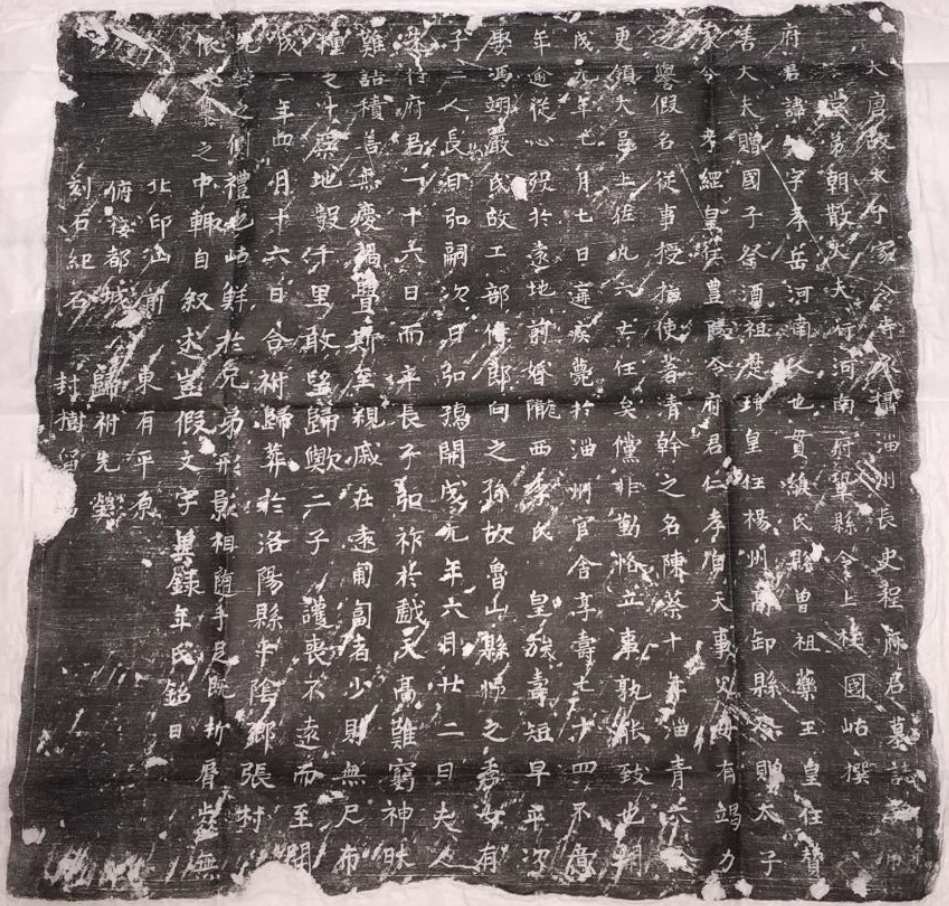 大唐故太子家令寺丞攝淄州長史程府君墓誌
堂弟朝散大夫行河南府鞏縣令上柱國岵撰
府君諱 字孝岳河南人也貫緱氏縣曾祖藥王皇任贊
善大夫贈國子祭酒祖 皇任楊州高郵縣 贈太子
家令 經皇 豊陵令府君仁孝自天事父母有竭力
之譽假名從事授指使著清幹之名陳蔡十年淄青
更領大邑上佐 任矣儻非勤恪立事孰能致也開
成元年七月七日遘疾薨於淄州官舍享壽七十四不
年逾從心歿於遠地前婚隴西李氏 皇族壽短早卒次
娶馮翊嚴氏故工部侍郎向之孫故魯山縣 之季女有
子二人長曰弘嗣次曰弘 開成元年六月廿二日夫人
先府君一十六日而卒長子弘祚於戲天高難窮神昧
難詰積善無慶禍釁斯至親戚在遠匍匐者少則無尺布
種之斗粟地 千里敢望歸歟二子護喪不遠而至開
成二年四月十六日合祔歸葬於洛陽縣平陰鄉張村
先塋之側禮也岵鮮於兄弟形影相隨手足既折脣齒無
依 之中輒自叙述豈假文字異録年氏銘曰
北邙山前 東有平原
俯接都城 歸祔先塋
刻石紀石 封樹